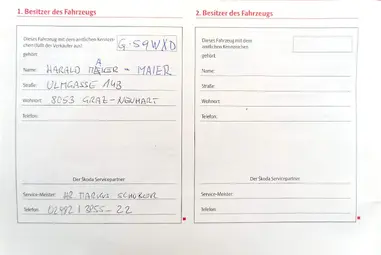 1. Besitzer des Fahrzeugs
Dieses Fahrzeug mit dem amtlichen Kennzei-
chen (falls der Verkäufer aus)
G-59WXD
gehört
Name: HARALD MAIER
Straße: ULMGASSE 14B
Wohnort: 8053 GRAZ-NEUHART
Telefon:
Der Škoda Servicepartner
Service-Meister: HR MARKUS
Telefon: 02 22
2. Besitzer des Fahrzeugs
Dieses Fahrzeug mit dem
amtlichen Kennzeichen
gehört
Name:
Straße:
Wohnort:
Telefon:
Der Škoda Servicepartner
Service-Meister:
Telefon: